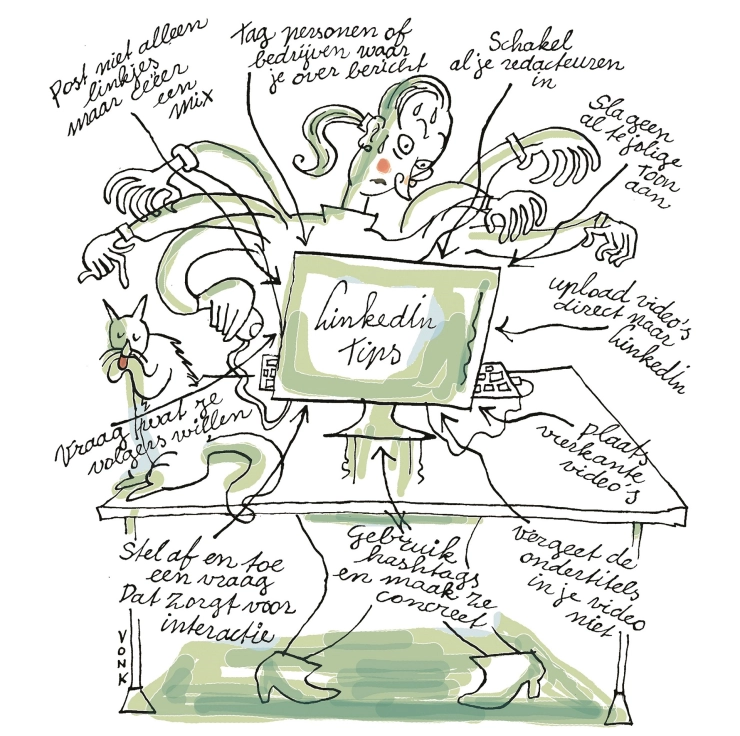 Post niet alleen
linkjes
maar
een
mix
Tag personen of
bedrijven waar
je over bericht
Schakel
al je redacteuren
in
Sla geen
al te jolige
toon
aan
LinkedIn
tips
upload video's
direct naar
LinkedIn
Vraag wat je
volgers willen
plaats
vierkante
video's
Stel af en toe
een vraag
Dat zorgt voor
interactie
Gebruik
hashtags
en maak ze
concreet
vergeet de
ondertitels
in je video
niet
VONK